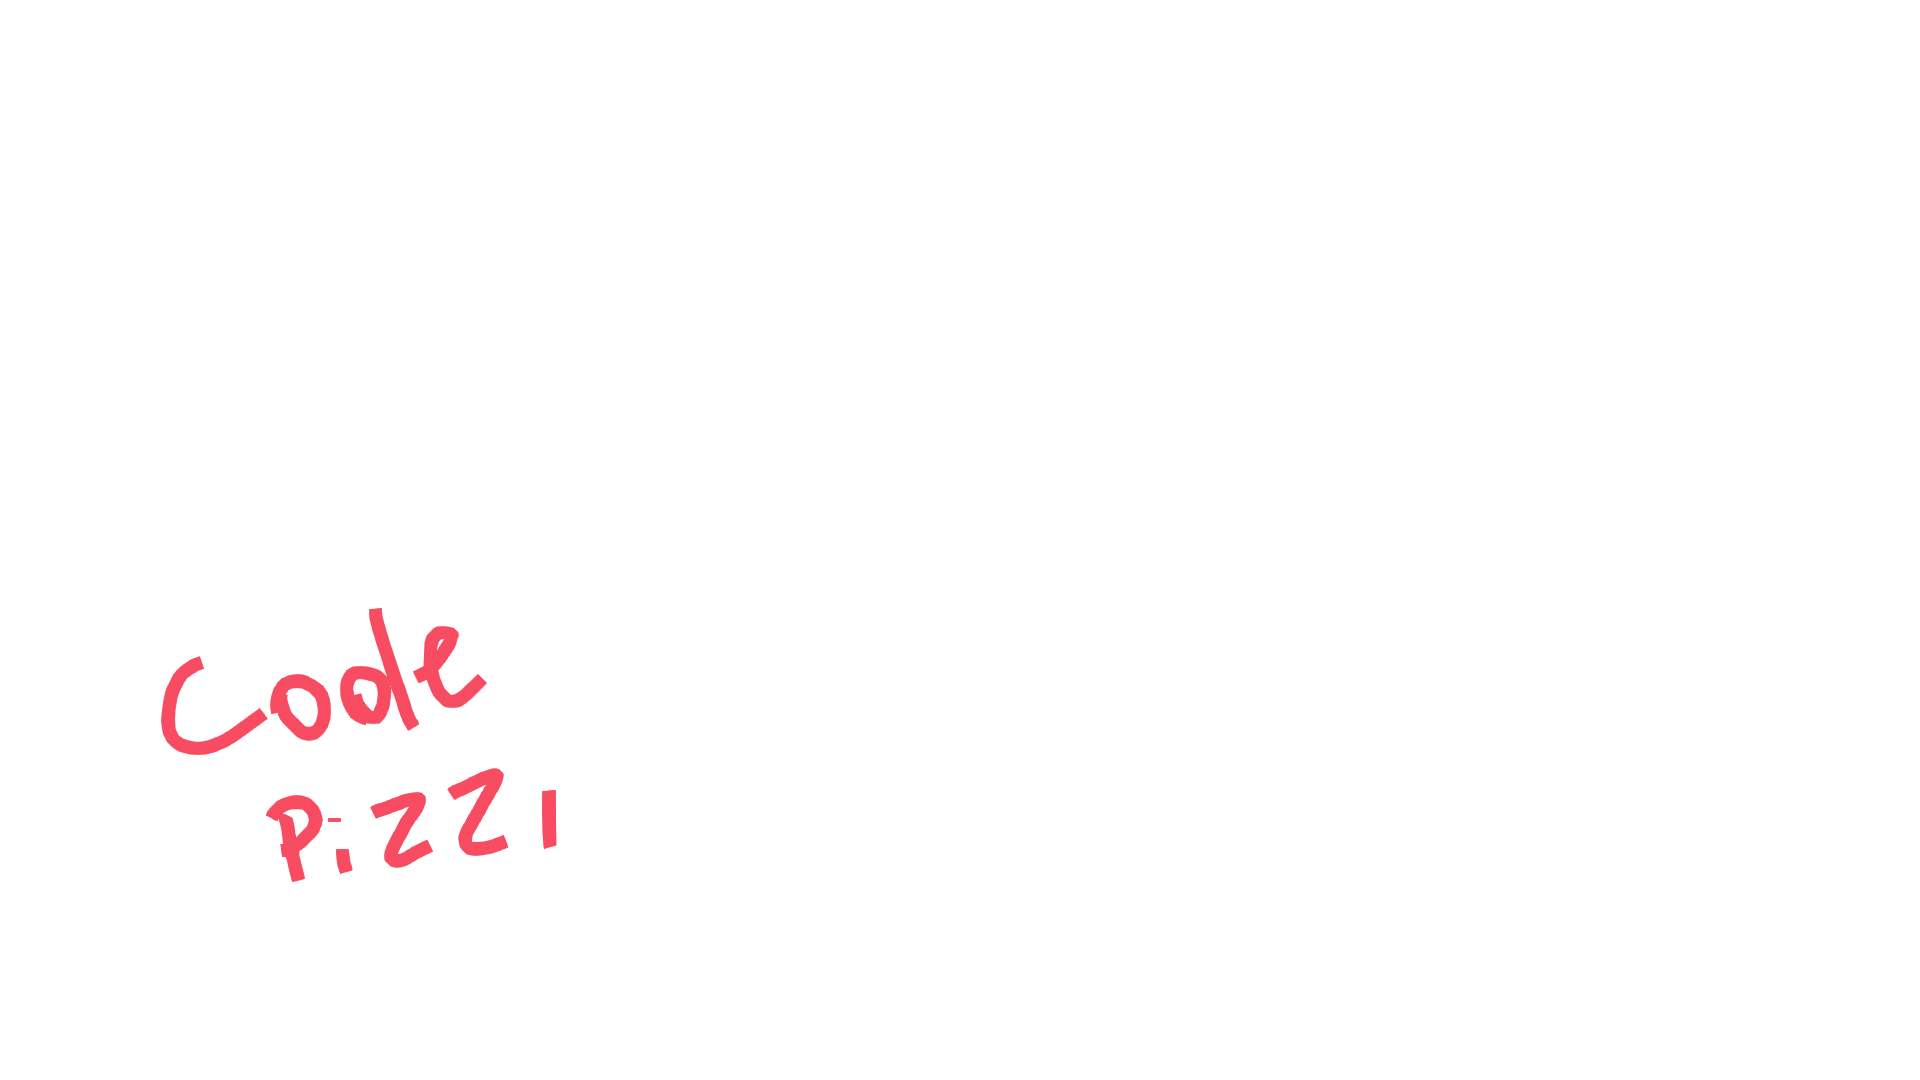 Code
Pizzı